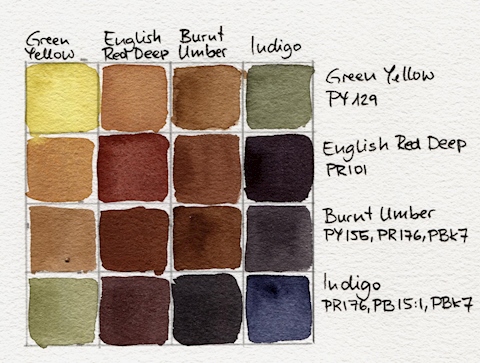 Green Yellow
English Red Deep
Burnt Umber
Indigo
Green Yellow
PY129
English Red Deep
PR101
Burnt Umber
PY155, PR176, PBk7
Indigo
PR176, PB15:1, PBk7